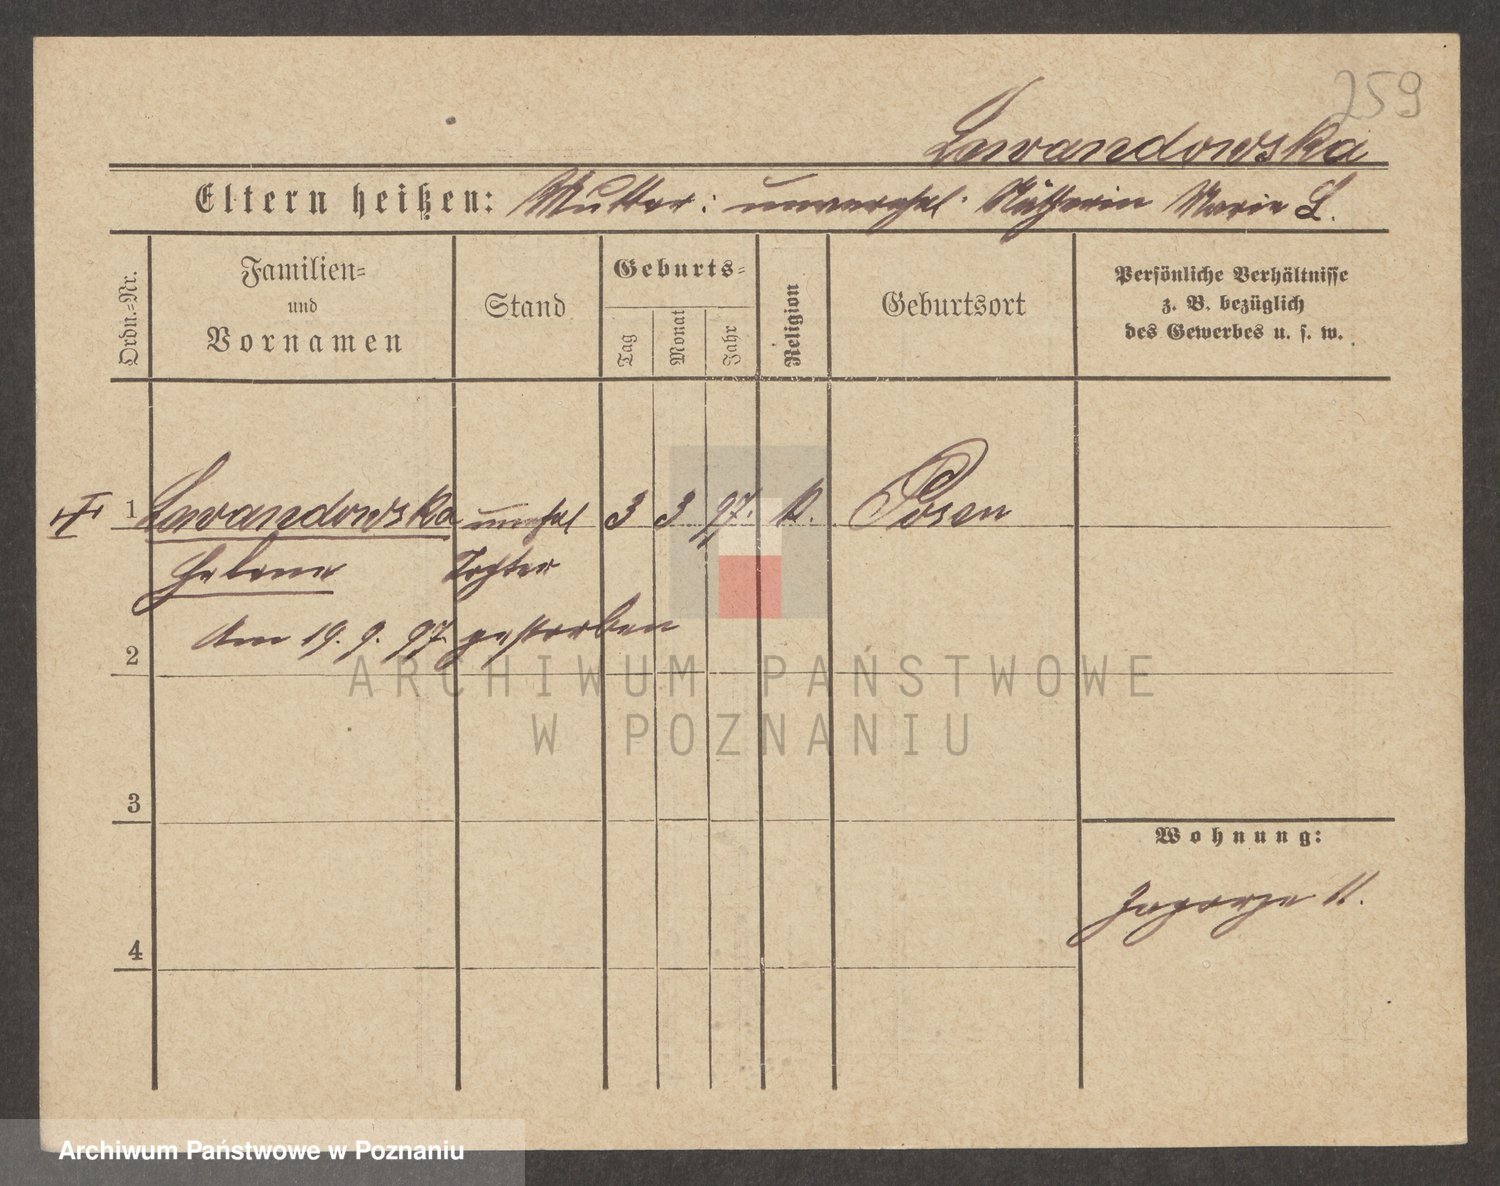 259
Lewandowska
Eltern heißen: Mutter: unverehel. Näherin Marie L.
Ordn.-Nr.
Familien- und Vornamen
Stand
Geburts-
Tag
Monat
Jahr
Religion
Geburtsort
Persönliche Verhältnisse
z. B. bezüglich
des Gewerbes u. s. w.
1 Lewandowska unehel 3 3 97. k. Posen
Helene Tochter
Am 19. 9. 97. gestorben
2
3
Wohnung:
Zagorze 11.
4
ARCHIWUM PAŃSTWOWE
W POZNANIU
Archiwum Państwowe w Poznaniu